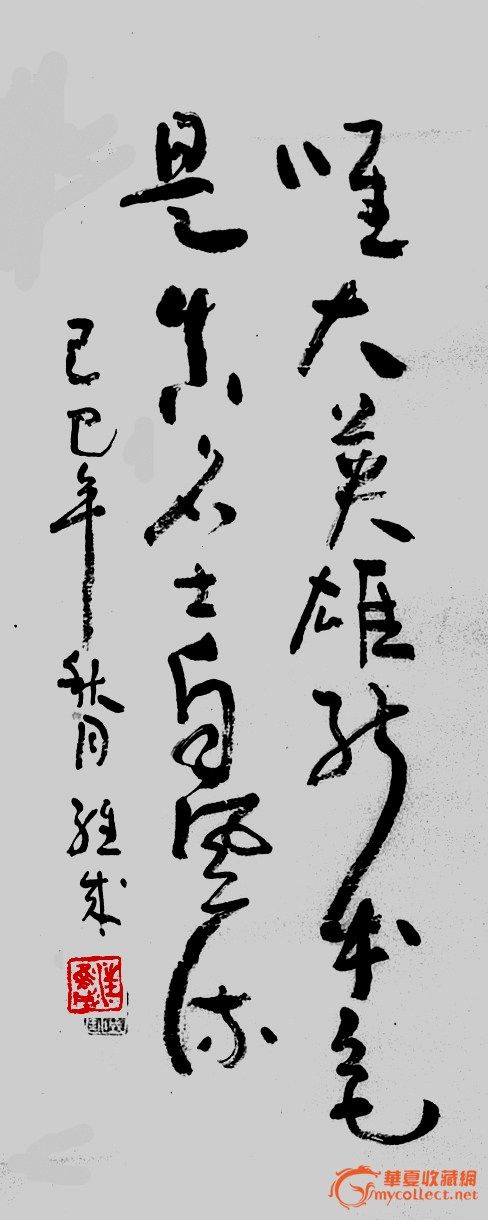 唯大英雄能本色
是真名士自風流
己巳年秋月 維成
華夏收藏網
mycollect.net